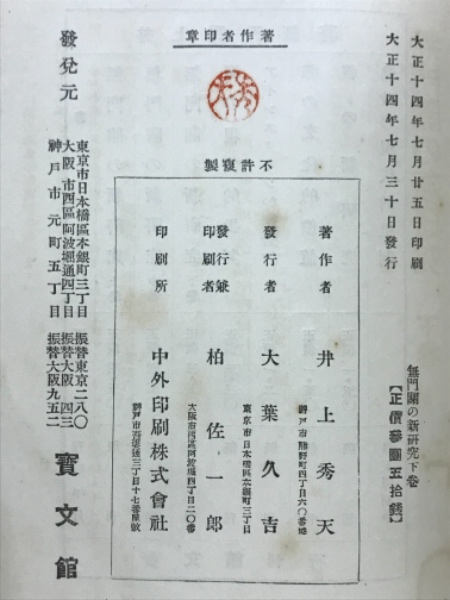 大正十四年七月廿五日印刷
大正十四年七月三十日發行
無門關の新研究下卷
【正價參圓五拾錢】
著作者印章
不許複製
著作者 井上秀天
神戸市熊野町四丁目六〇番地
發行者 大葉久吉
東京市日本橋區本銀町三丁目
發行兼印刷者 柏佐一郎
大阪市西區阿波堀通四丁目二〇番
印刷所 中外印刷株式會社
發兌元
東京市日本橋區本銀町三丁目 振替東京二八〇
大阪市西區阿波堀通四丁目 振替大阪四三
神戸市元町五丁目 振替大阪九五二
寶文館